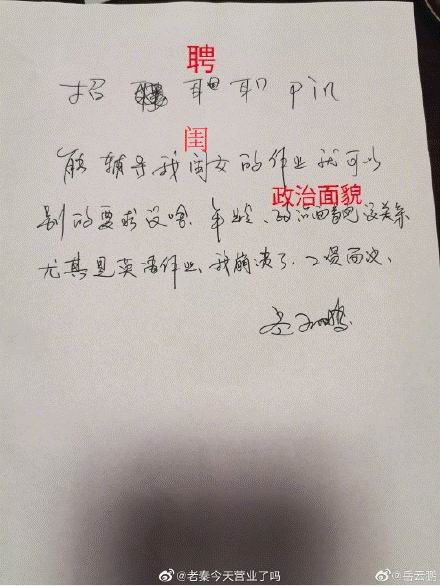 聘
招 职 职 pin
闺
能辅导我闺女的作业就可以
政治面貌
别的要求没啥.年龄、政治面貌没关系
尤其是英语作业,我崩溃了.工资面议、
岳云鹏
@老秦今天营业了吗
@岳云鹏